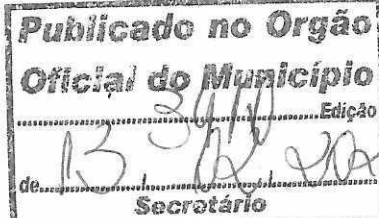 Publicado no Orgão
Oficial do Município
Edição
de 13
Secretário